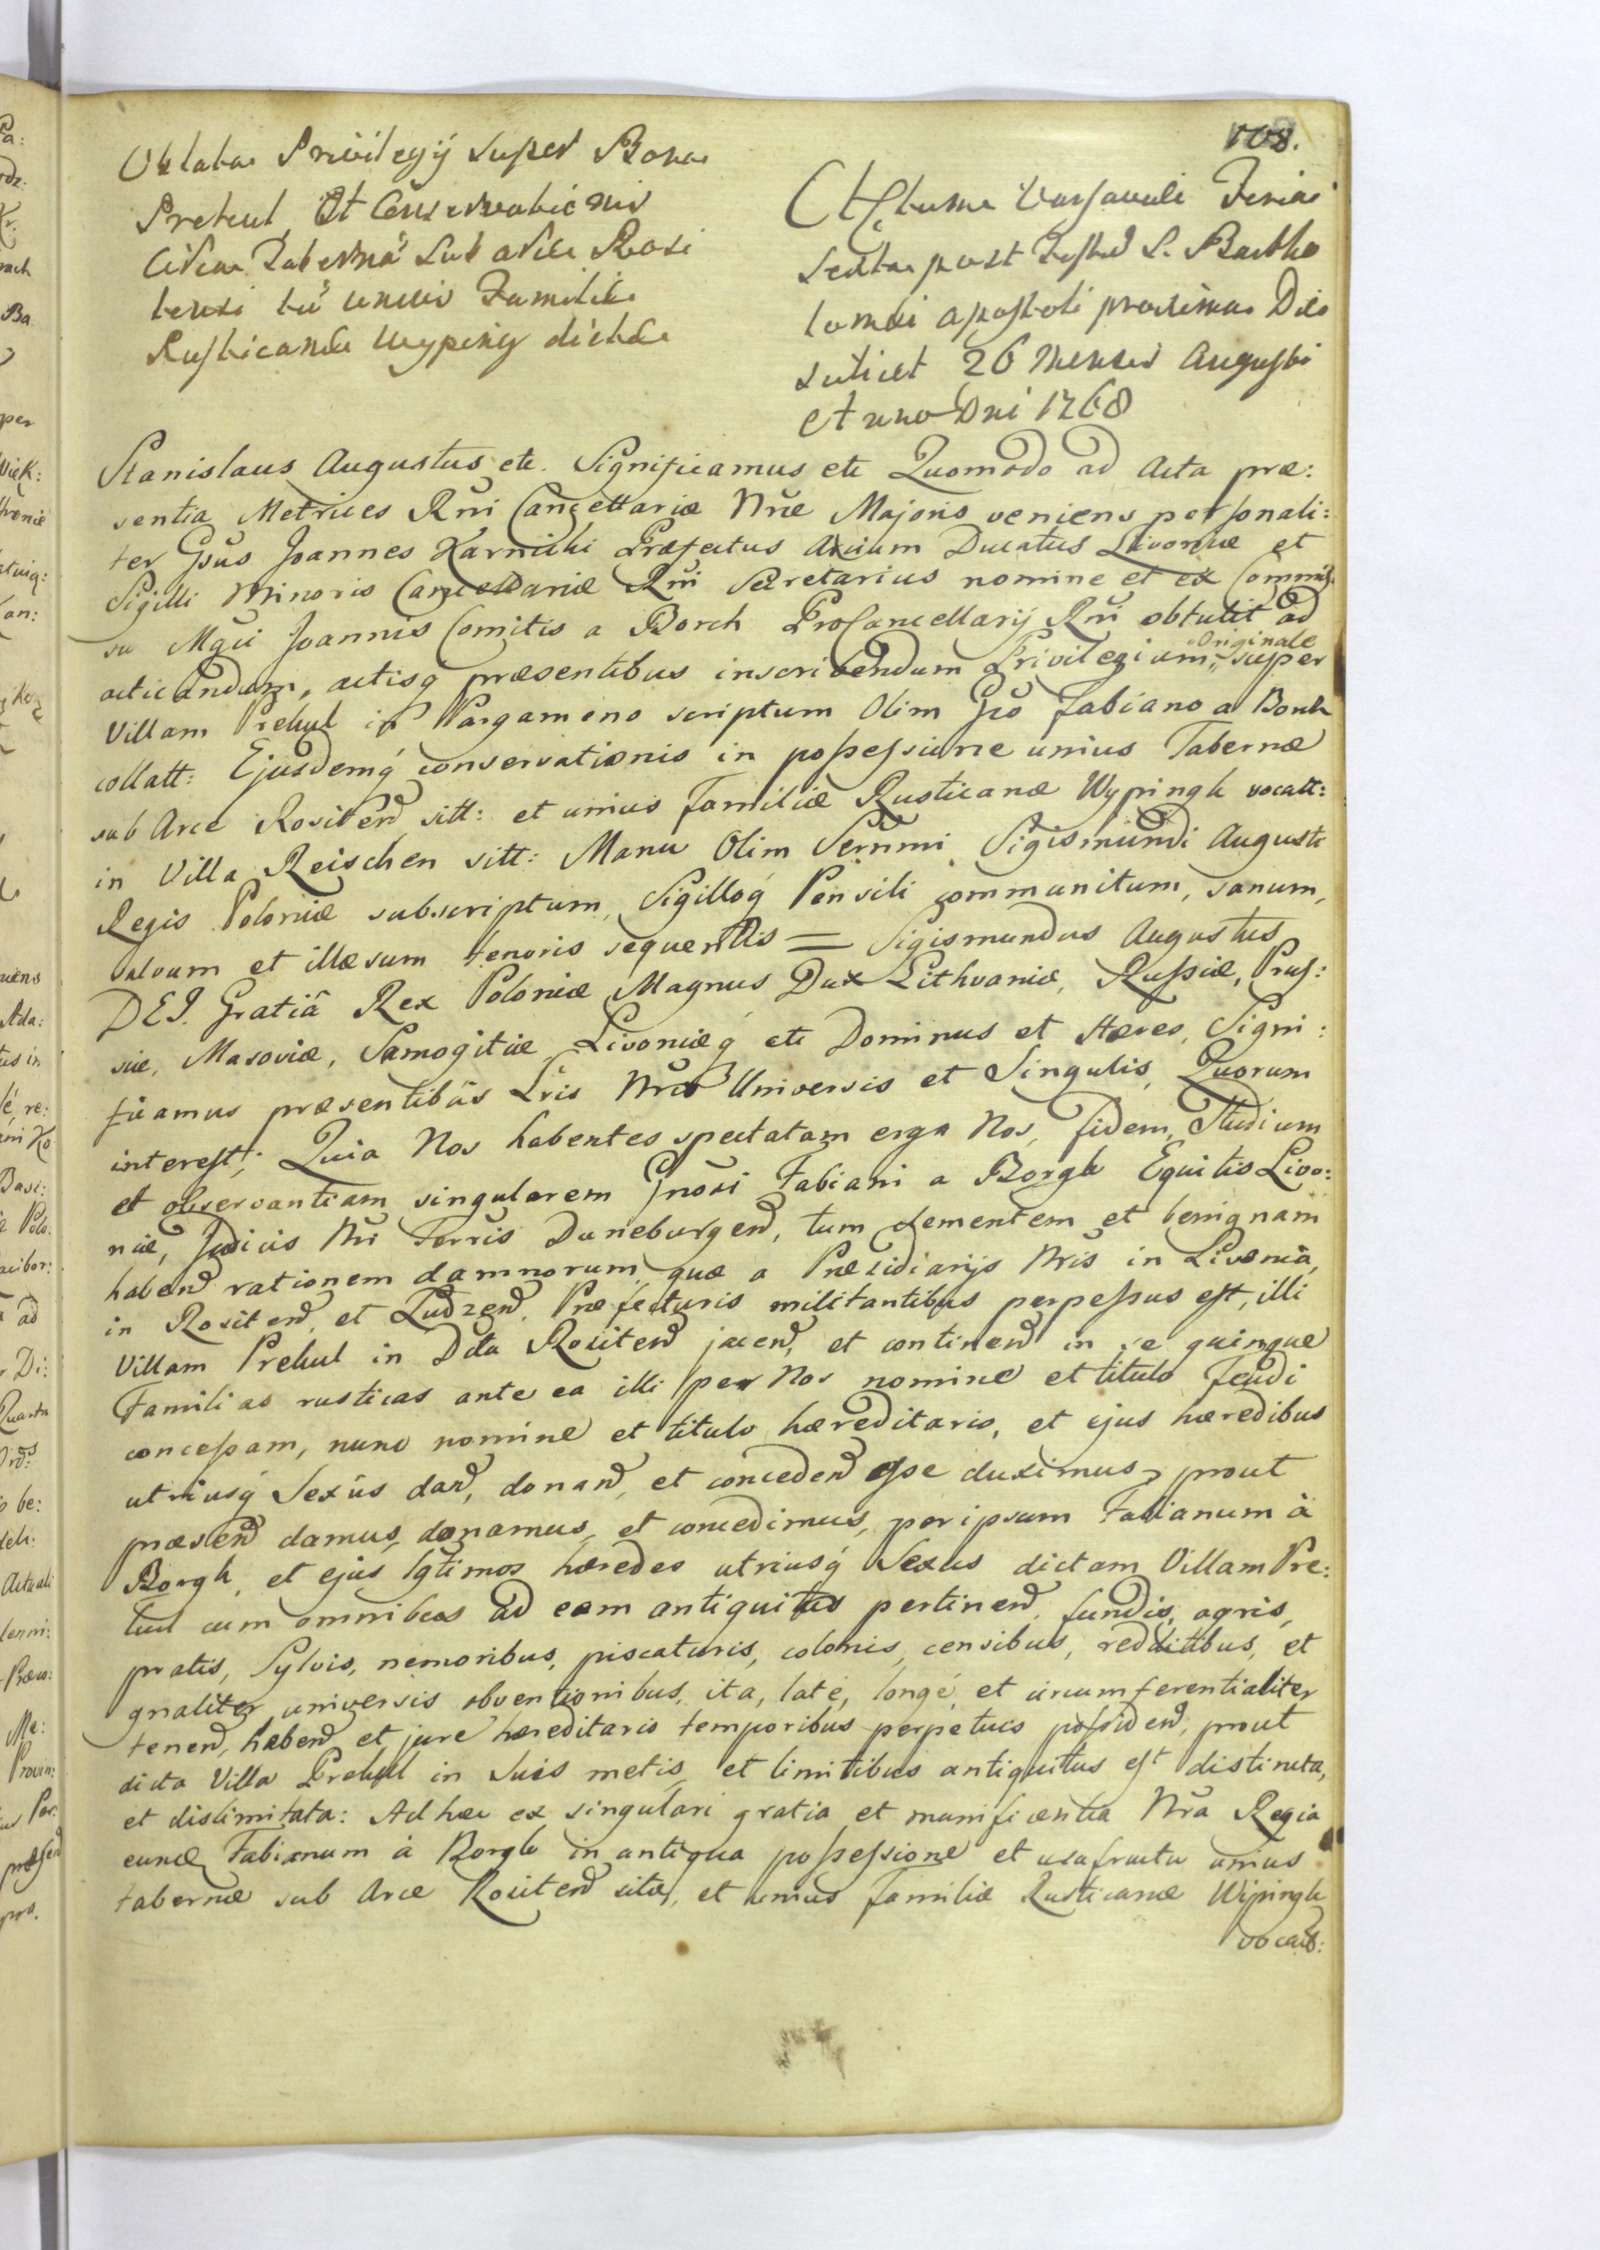 108.
Oblata Privilegij super Bona
Prekul, Et Conservationis
Circa Taberna sub arce Rosi
tensi tū unius Familiæ
Rusticanæ Wyping dictæ
Actum Varsaviæ Feria
Sexta post Festū S. Bartho
lomæi Apostoli proxima Die
scilicet 26 Mensis Augusti
Anno Dni 1768
Stanislaus Augustus etc. Significamus etc Quomodo ad Acta præ:
sentia Metrices Rni Cancellariæ Nræ Majoris veniens personali:
ter Gsus Joannes Karnicki Præfectus Arcium Ducatus Livoniæ et
Sigilli Minoris Cancellariæ Rni Secretarius nomine et ex Commis
su Mgci Joannis Comitis a Borch ProCancellarij Rni obtulit ad
acticandum, actisq præsentibus inscribendum Privilegium Originale super
Villam Prekul in Pargameno scriptum Olim Gso Fabiano a Borch
collatt: Ejusdemq conservationis in possessione unius Tabernæ
sub Arce Rositen sitt: et unius Familiæ Rusticanæ Wypingk vocatt:
in Villa Reischen sitt: Manu Olim Sernmi Sigismundi Augusti
Regis Poloniæ subscriptum, Sigilloq Pensili communitum, sanum,
salvum et illæsum tenoris sequentis = Sigismundus Augustus
DEI Gratiâ Rex Poloniæ Magnus Dux Lithvaniæ, Russiæ, Prus:
siæ, Masoviæ, Samogitiæ Livoniæq etc Dominus et Hæres, Signi:
ficamus præsentibus Lris Nris Universis et Singulis, Quorum
interest; Quia Nos habentes spectatam erga Nos, fidem, Studium
et observantiam singularem Gnosi Fabiani a Borgk Equitis Livo:
niæ, Judicis Nri Terris Duneburgen, tum clementem et benignam
haben rationem damnorum quæ a Præsidiarijs Nris in Livonia,
in Rositen, et Ludzen Præfecturis militantibus perpessus est, illi
Villam Prekul in Dicta Rositen jacen, et continen in se quinque
Familias rusticas ante ea illi per Nos nomine et titulo Feudi
concessam, nunc nomine et titulo hæreditario, et ejus hæredibus
utriusq Sexûs dan, donan, et conceden esse duximus, prout
præsen damus, donamus, et concedimus, per ipsum Fabianum à
Borgk, et ejus lgtimos hæredes utriusq Sexus dictam Villam Pre:
kul cum omnibus ad eam antiquitus pertinen fundis, agris,
pratis, Sylvis, nemoribus, piscaturis, colonis, censibus, redditibus, et
gnaliter universis obventionibus, ita, laté, longé, et circumferentialiter
tenen, haben et jure hæreditario temporibus perpetuis possiden, prout
dicta Villa Prekul in Suis metis et limitibus antiquitus est distincta,
et dislimitata: Ad hæc ex singulari gratia et munificentia Nra Regia
eundē Fabianum à Borgk in antiqua possessione et usufructu unius
tabernæ sub Arce Rositen sitæ, et unius Familiæ Rusticanæ Wipingk
vocatt: